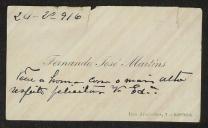 24-5º-916
Fernando José Martins
Tem a honra com o mais alto
respeito felicitar V. Ex.ª